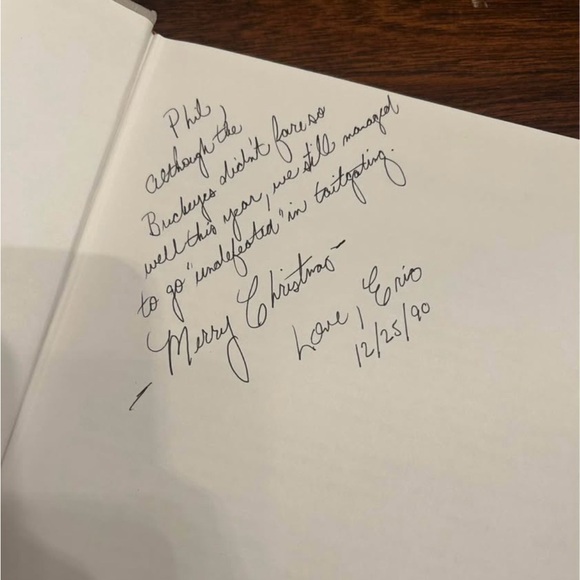 Phil,
although the
Buckeyes didn't fare so
well this year, we still managed
to go "undefeated" in tailgating.
- Merry Christmas -
Love, Eric
12/25/90